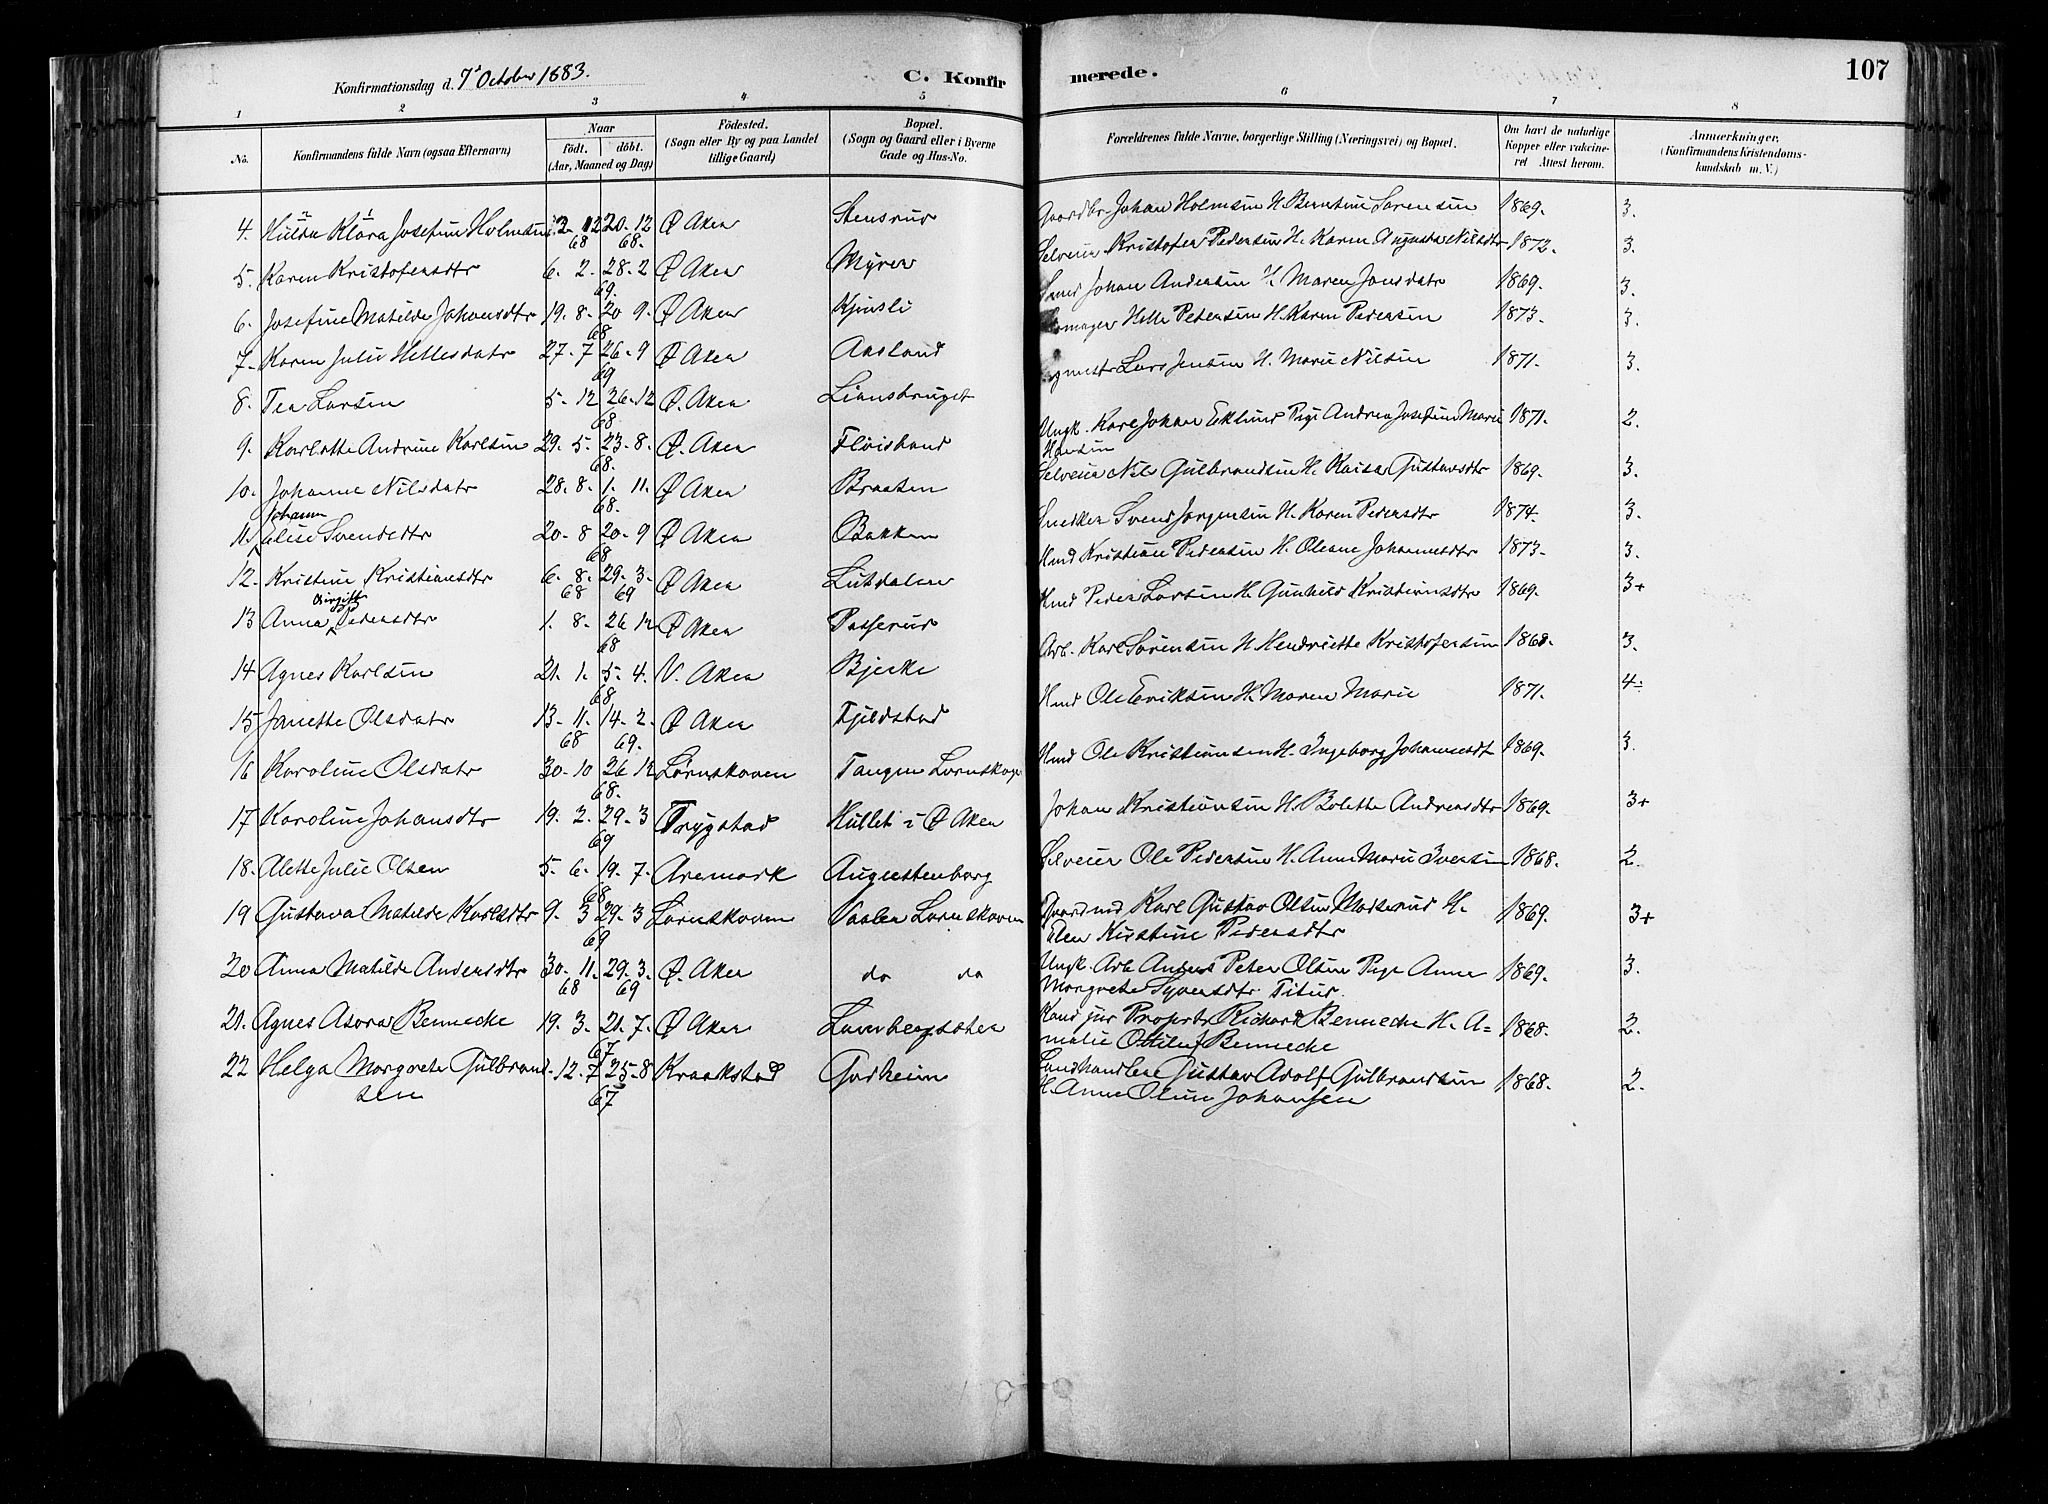 107
Konfirmationsdag d. 7de October 1883. C. Konfir merede.
1 2 3 4 5 6 7 8
No. Konfirmandens fulde Navn (ogsaa Efternavn) Naar födt. döbt. (Aar, Maaned og Dag) Födested. (Sogn eller By og paa Landet tillige Gaard) Bopæl. (Sogn og Gaard eller i Byerne Gade og Hus-No. Forældrenes fulde Navne, borgerlige Stilling (Næringsvei) og Bopæl. Om havt de naturlige Kopper eller vakcineret Attest herom. Anmærkninger, (Konfirmandens Kristendomskundskab m. V.)
4. Hulda Klara Josefine Holmsen 12 68 20-12 68. Ø Aker Stensrud Gaardbr. Johan Holmsen H. Berntine Sørensen 1869. 3.
5. Karen Kristofersdtr 6. 2. 28. 2 69. Ø Aker Myrer Selveier Kristofer Pedersen H. Karen Augusta Nilsdtr 1873. 3.
6. Josefine Matilde Johansdtr 19. 8. 20 9. 68 Ø Aker Kjinsli Johan Andersen H. Maren Jonsdatr 1869. 3.
7. Karen Julie Hellesdatr 27. 7 26. 9 69 Ø Aker Aasland Helle Petersen H. Karen Pedersen 1873. 3.
8. Tea Larsen 5. 12 26-12 68 Ø. Aker Liansbruget Lars Jensen H. Marie Nilsen 1871. 3.
9. Karlotte Andrine Karlsen 29. 5. 23-8. 68. Ø. Aker Fløisbond Ungk. Karl Johan Eklund Pige Andrea Josefine Marie Hansen 1871. 2.
10. Johanne Nilsdatr 28. 8. 1. 11. 68. Ø Aker Braaten Selveier Nils Gulbrandsen H. Kaisa Gustavsdtr 1869. 3.
Johanne
11. Elise Svendsdtr 20-8 20-9 68 Ø Aker Bakken Snedker Svend Jørgensen H. Karen Pedersdtr 1874. 3.
12. Kristine Kristiansdtr 6. 8. 68 29. 3. 69 Ø Aker Lusdalen Hmd Kristian Pedersen H. Olesine Johannesdtr 1873. 3.
Birgitte
13 Anna Pedersdtr 1. 8. 26 12 68 Ø Aker Passerud Hmd Peder Larsen H. Gunhild Kristiansdtr 1869. 3+
14 Agnes Karlsen 21. 1. 5. 4. 68 V. Aker Bjerke Arb. Karl Sørensen H. Hendriette Kristofersen 1868. 3.
15 Janette Olsdatr 13. 11. 68 14. 2. 69. Ø Aker Fjeldstad Hmd Ole Eriksen H. Maren Marie 1871. 4.
16 Karoline Olsdatr 30-10 26 12 68. Lørenskoven Tangen Lørenskogen Hmd Ole Kristiansen H. Ingeborg Johannesdt 1869. 3.
17 Karoline Johansdtr 19. 2. 29. 3 69 Trygstad Hullet i Ø Aker Johan Kristiansen H. Bolette Andreasdtr 1869. 3+
18. Alette Julie Olsen 5. 6. 19. 7. 68 Aremark Augustenborg Selveier Ole Pedersen H. Anne Marie Iversen 1868. 2.
19 Gustava Matilde Karlsdtr 9. 3 29. 3 69 Lørenskoven Vaalen Lørenskoven Gaardmd Karl Gustav Olsen Maserud H. Elen Kirstine Pedersdtr 1869. 3+
20 Anna Matilde Andersdtr 30. 11. 68 29. 3. 69 Ø. Aker do do Ungk. Arb. Anders Peter Olsen Pige Anne Margrete Syversdtr Titur. 1869. 3.
21. Agnes Asora Bennecke 19. 3. 21. 7. 67 Ø Aker Kand jur Propr. Richard Bennecke H. Amalie Ottilie f Bennecke 1868. 2.
22 Helga Margrete Gulbrandsen 12. 7 25-8 67 Kraakstad Godheim Landhandler Gustav Adolf Gulbrandsen H. Anne Oline Johansen 1868. 2.